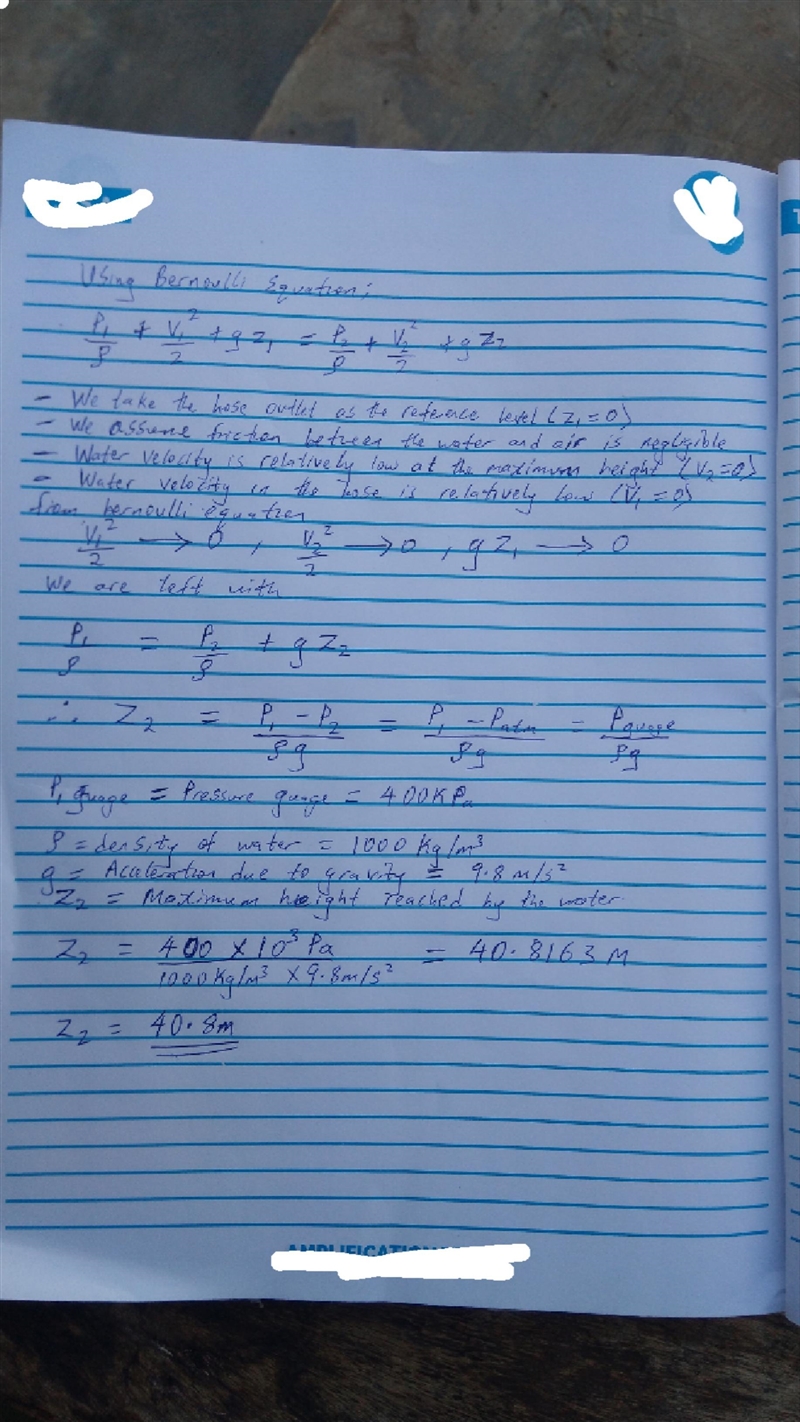 Using Bernoulli Equation;
P₁/ρ + V₁²/2 + gz₁ = P₂/ρ + V₂²/2 + gz₂
- We take the hose outlet as the reference level (Z₁=0)
- We assume friction between the water and air is negligible
- Water velocity is relatively low at the maximum height (V₂=0)
- Water velozity in the hose is relatively low (V₁=0)
from bernoulli equation
V₁²/2 → 0 , V₂²/2 → 0 , gZ₁ → 0
We are left with
P₁/ρ = P₂/ρ + gZ₂
∴ Z₂ = P₁ - P₂/ρg = P₁ - Patm/ρg = Pguage/ρg
P₁ guage = Pressure guage = 400KPa
ρ = density of water = 1000 Kg/m³
g = Acaleration due to gravity = 9.8 m/s²
Z₂ = Maximum height reached by the water
Z₂ = 400 × 10³ Pa/1000 Kg/m³ × 9.8m/s² = 40.8163 M
Z₂ = 40.8m